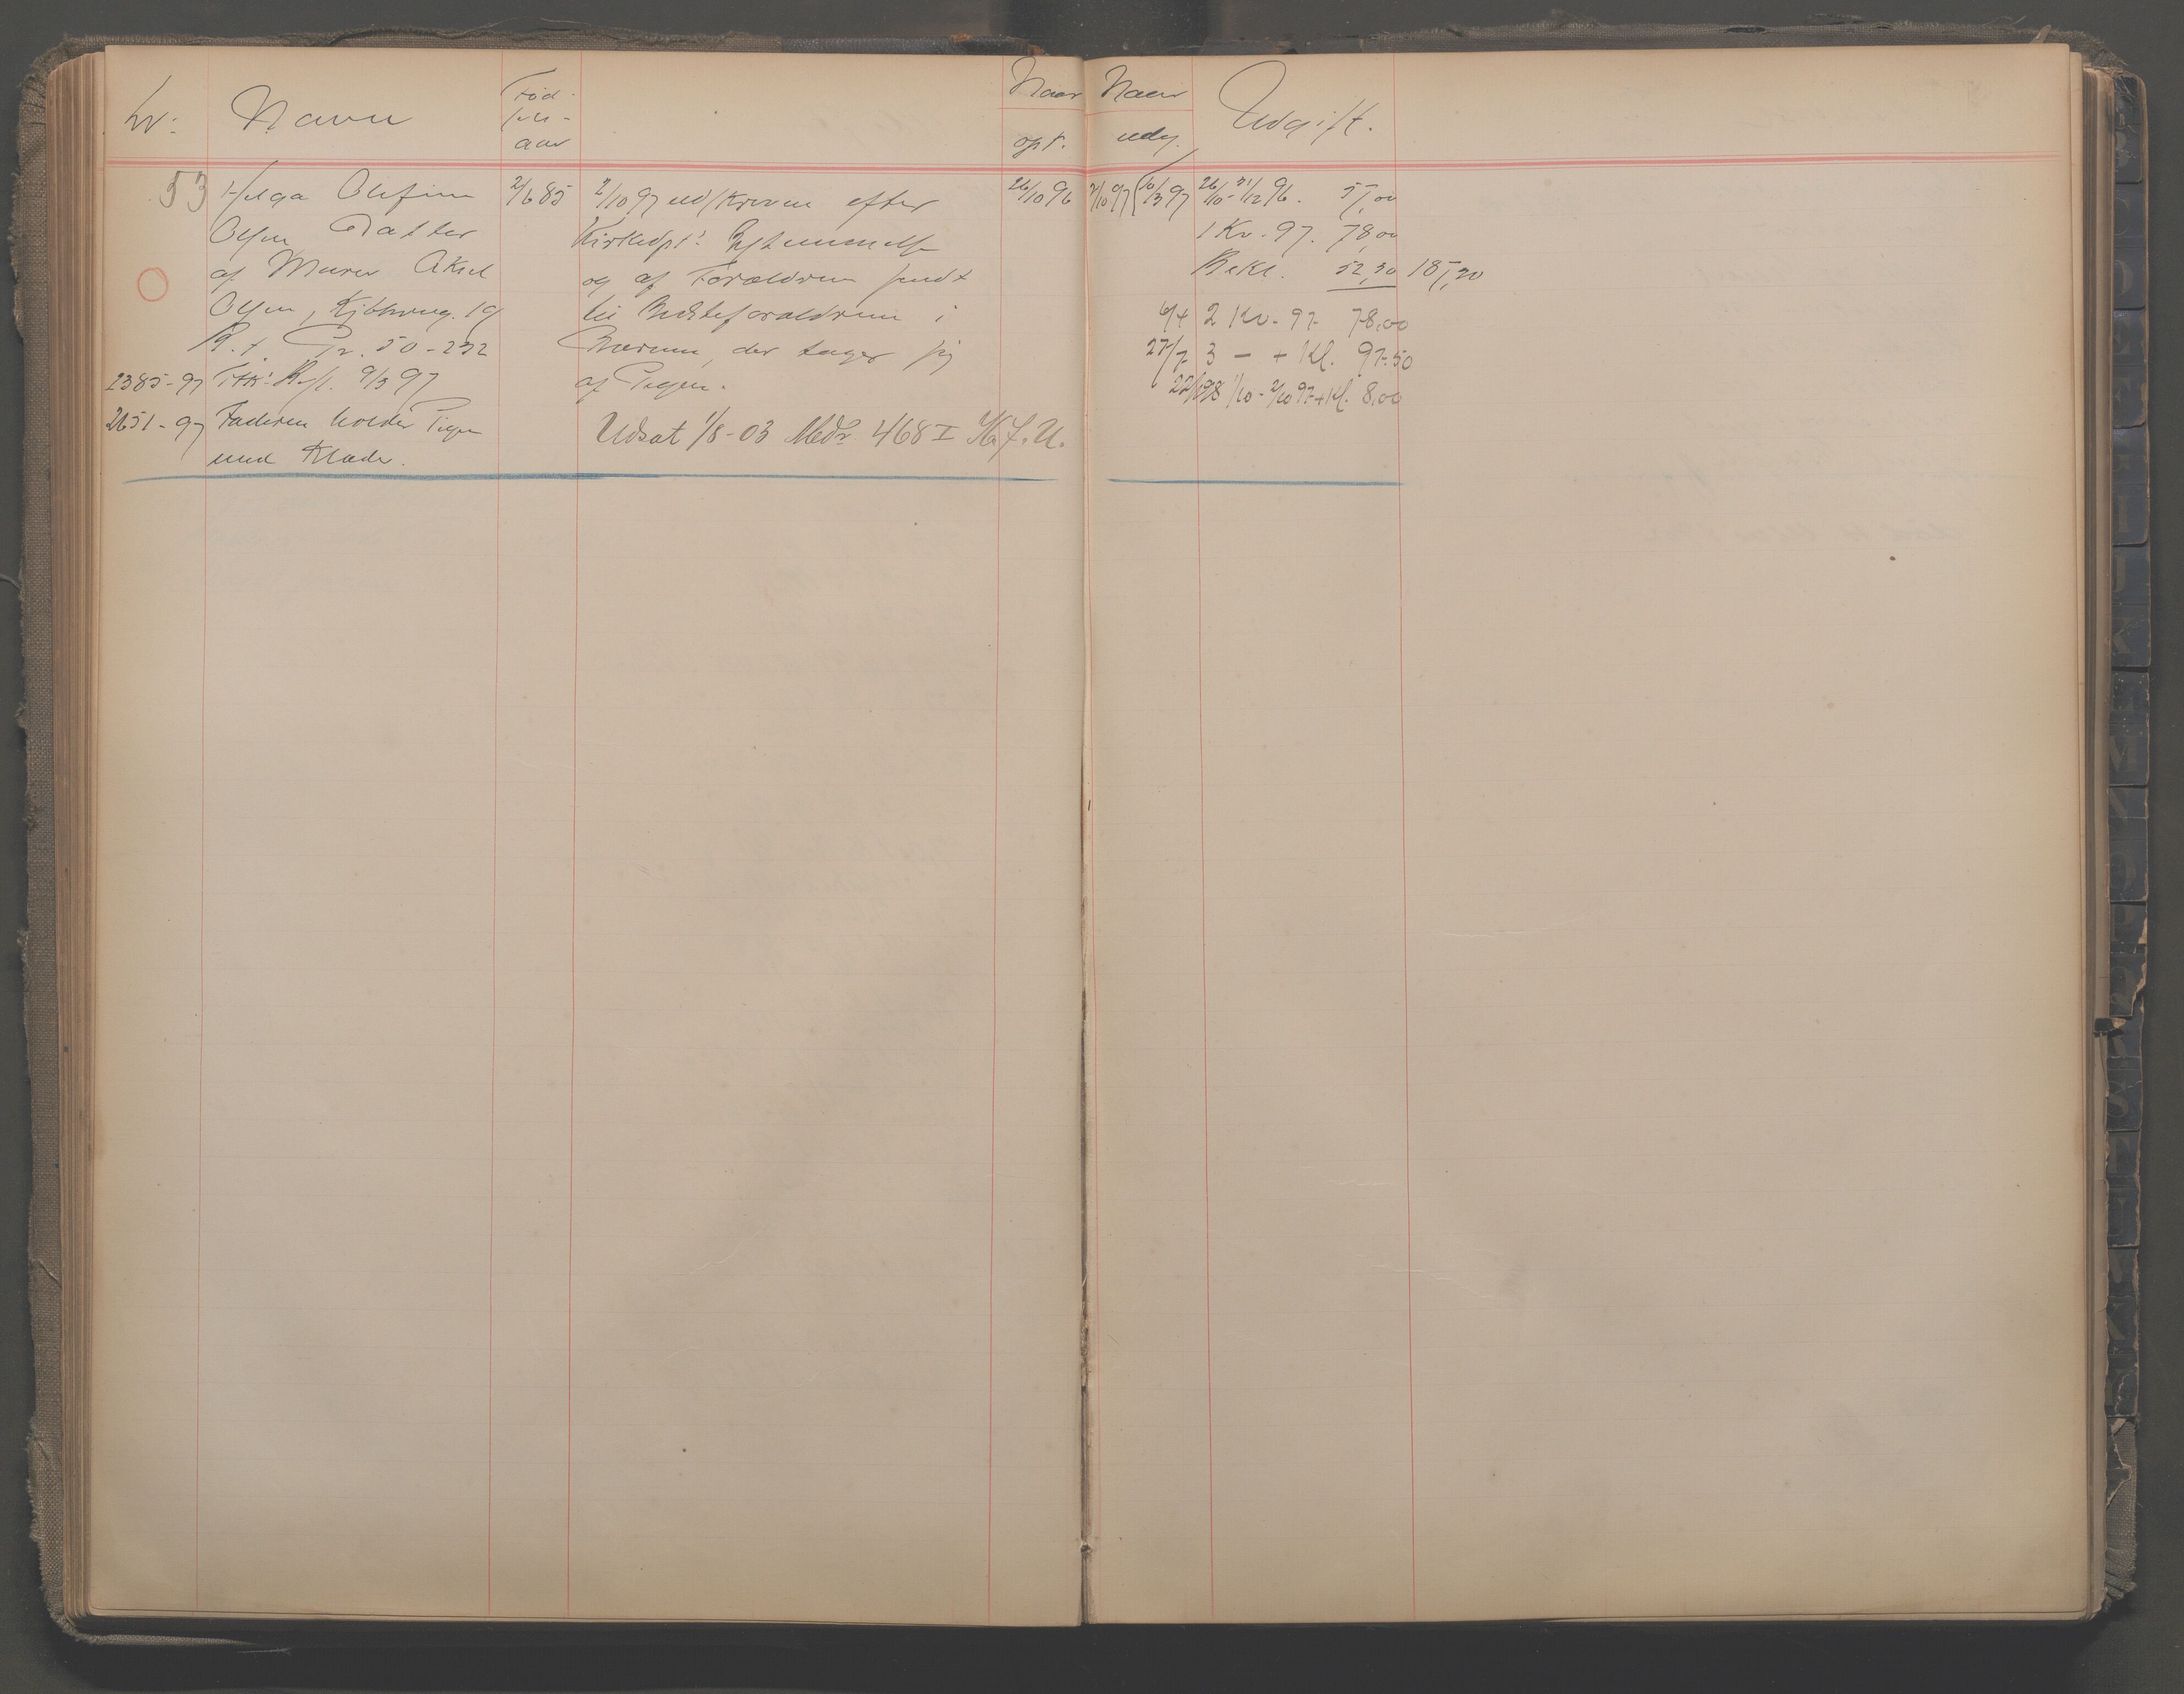 Nr:
Navn
Fød-
sels-
aar
Naar
opt.
Naar
udg.
Udgift.
53
Helga Olefine
Olsen, Datter
af Murer Aksel
Olsen, Kjbhvng. 19
R. t. Pr. 50-232
2385-97
Kst. 9/3 97
2651-97 Faderen holder Pigen
med Klæder.
2/6 85
2/10 97 udskreven efter
Kirkedpts Bestemmelse
og af Forældrene sendt
til Bedsteforældrene i
Bærum, der tager sig
af Pigen.
Udsat 1/8-03 Medd. 468 I
26/10 96
2/10 97 (10/3 97
26/10-31/12 96. 55,00
1 Kv. 97. 78,00
Bekl. 52,30 185,30
6/4 2 Kv. 97 78,00
27/7 3 — + Kl. 97.50
22/1 98 1/10-2/10 97 + Kl. 8,00